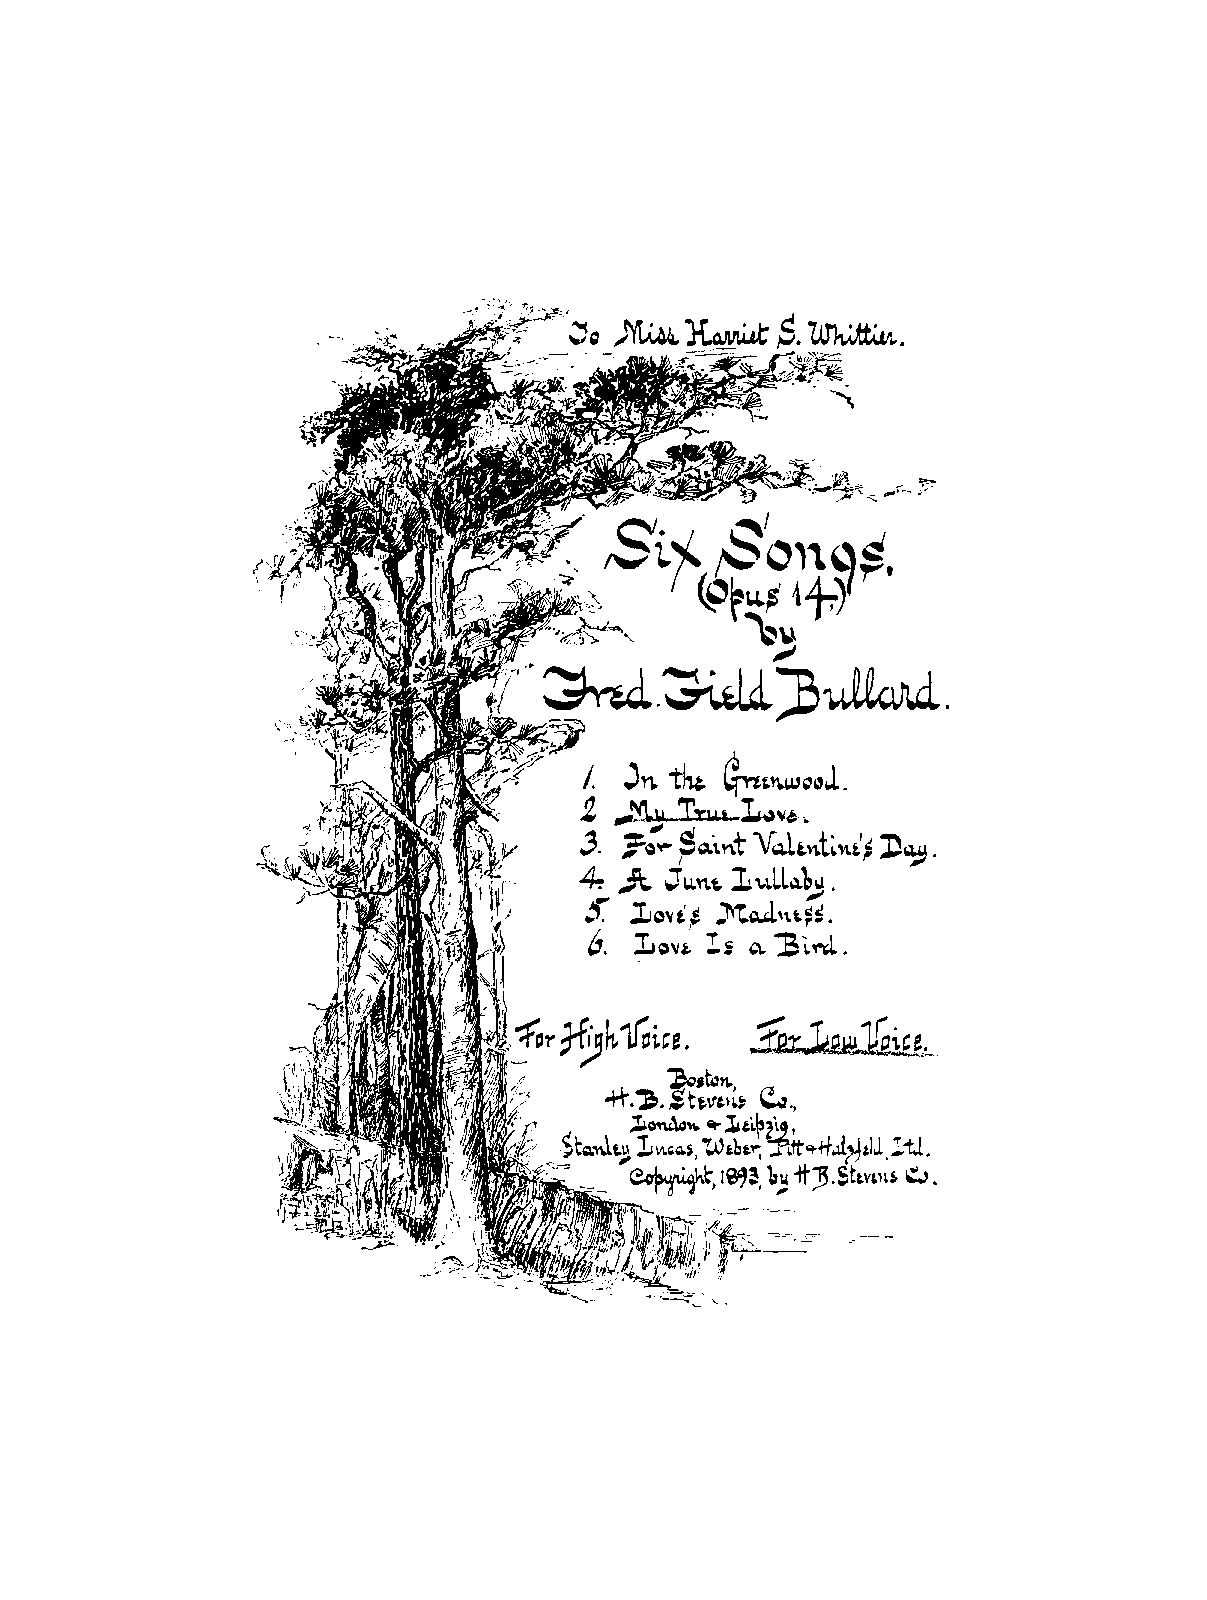 To Miss Harriet S. Whittier.
Six Songs.
(Opus 14.)
by
Fred. Field Bullard.
1. In the Greenwood.
2 My True Love.
3. For Saint Valentine's Day.
4. A June Lullaby.
5. Love's Madness.
6. Love Is a Bird.
For High Voice. For Low Voice.
Boston,
H. B. Stevens Co.,
London & Leipzig,
Stanley Lucas, Weber, Pitt & Hatzfeld, Ltd.
Copyright, 1893, by H B. Stevens Co.